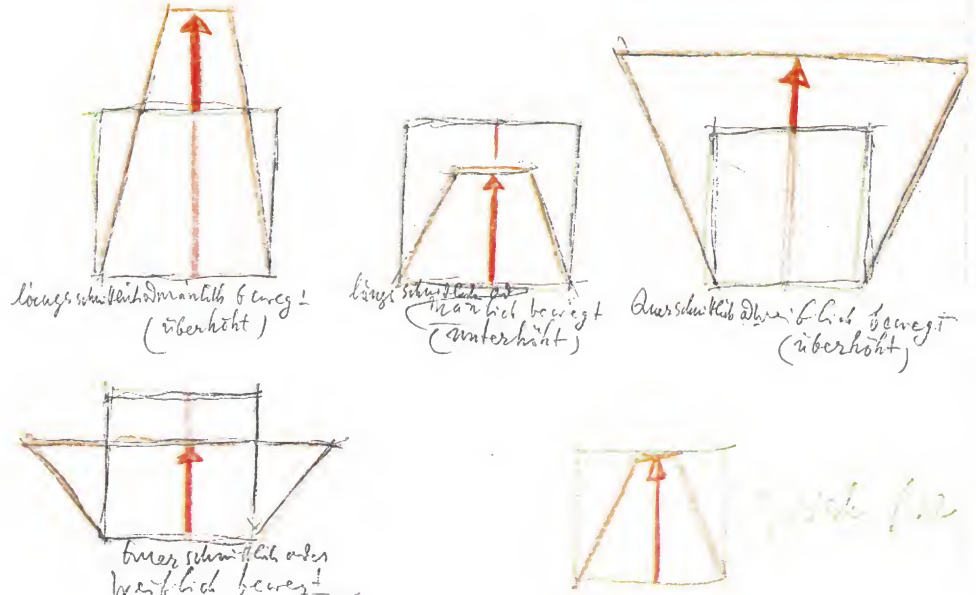 längsschnittlich od männlich bewegt
(überhöht)
längsschnittlich od
männlich bewegt
(unterhöht)
Querschnittlich od weiblich bewegt
(überhöht)
Querschnittlich oder
weiblich bewegt